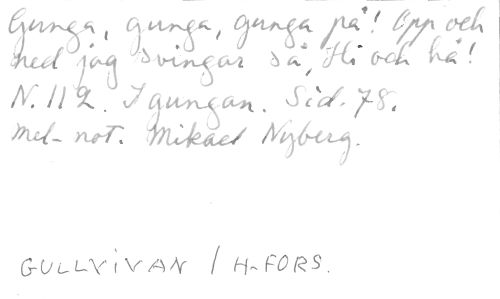 Gunga, gunga, gunga på! Opp och
ned jag svingar så, Hi och hå!
N. 112. I gungan. Sid. 78.
mel- not. Mikael Nyberg.
GULLVIVAN / H-FORS.